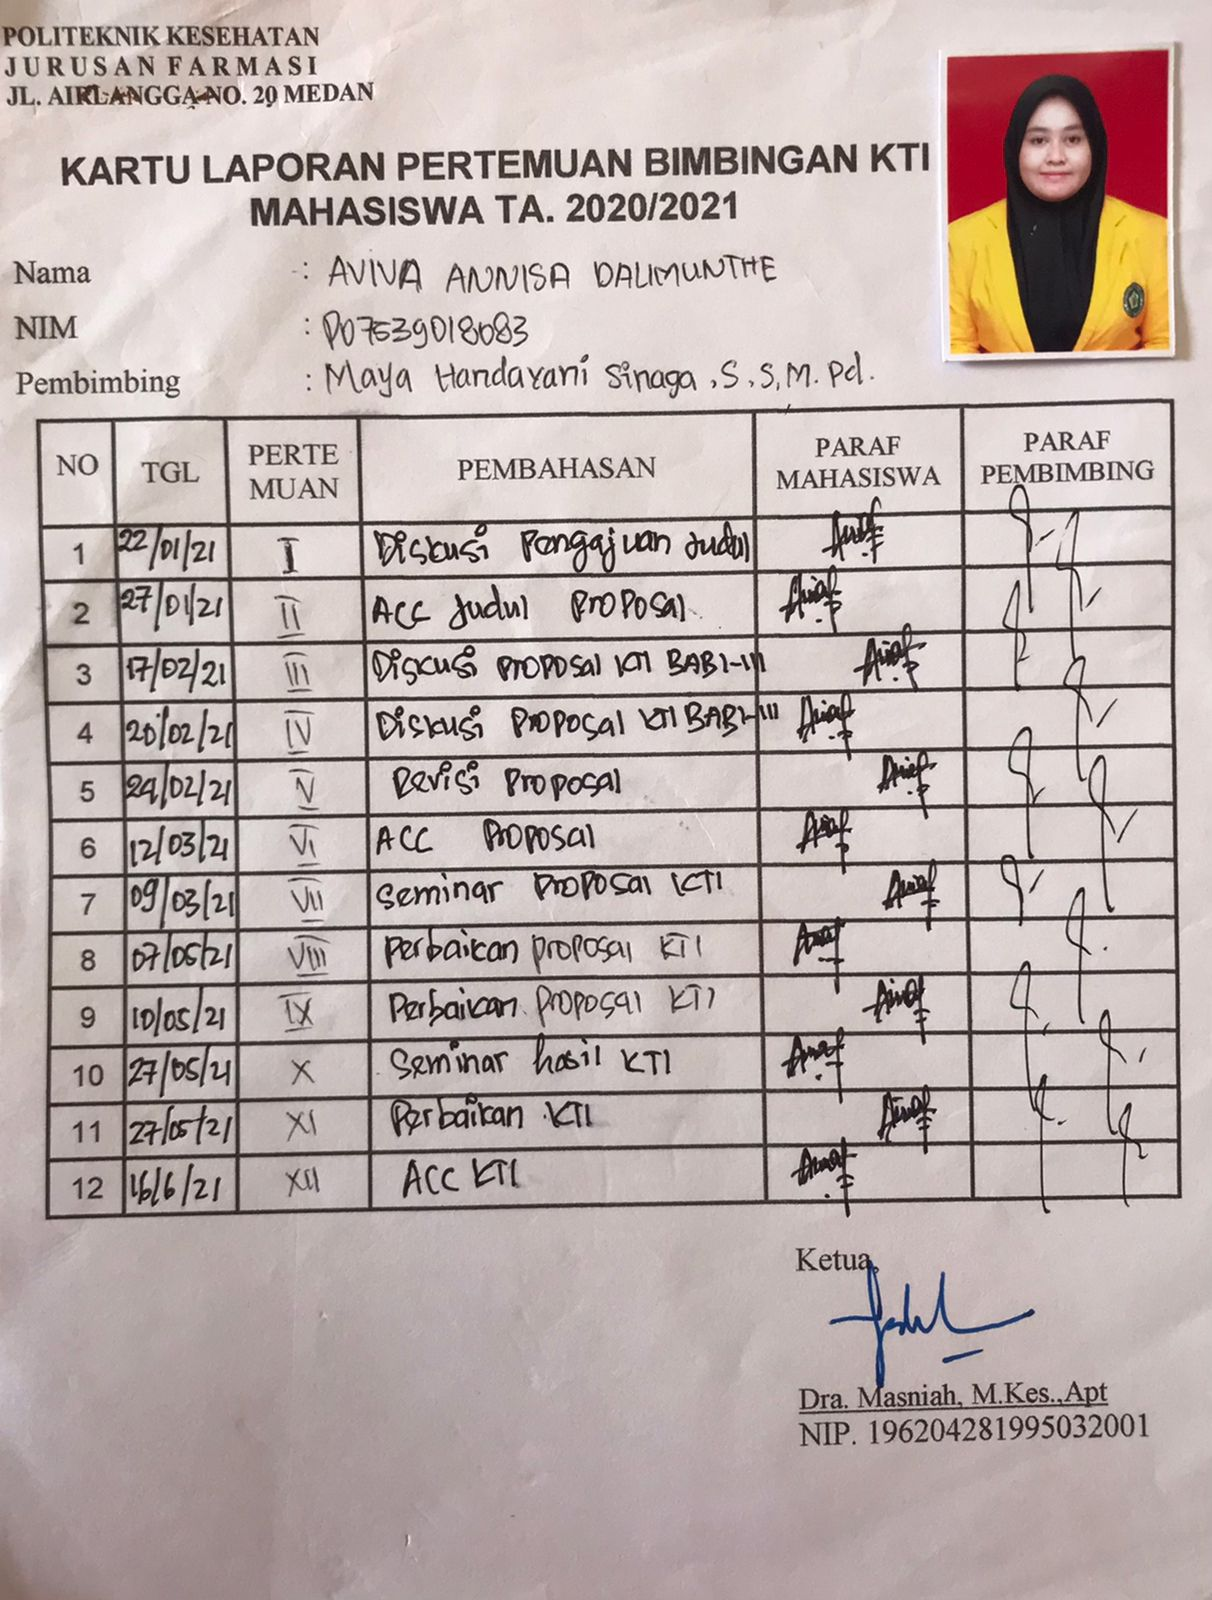 POLITEKNIK KESEHATAN
JURUSAN FARMASI
JL. AIRLANGGA NO. 20 MEDAN
KARTU LAPORAN PERTEMUAN BIMBINGAN KTI
MAHASISWA TA. 2020/2021
Nama : AVIVA ANNISA DALIMUNTHE
NIM : P07539018083
Pembimbing : Maya Handayani Sinaga, S.S, M.Pd.
NO TGL PERTE MUAN PEMBAHASAN PARAF MAHASISWA PARAF PEMBIMBING
1 22/01/21 I Diskusi Pengajuan Judul
2 27/01/21 II ACC Judul Proposal
3 17/02/21 III Diskusi Proposal KTI BAB I-III
4 20/02/21 IV Diskusi Proposal KTI BAB I-III
5 24/02/21 V Revisi Proposal
6 12/03/21 VI ACC Proposal
7 09/03/21 VII Seminar Proposal KTI
8 07/05/21 VIII Perbaikan Proposal KTI
9 10/05/21 IX Perbaikan Proposal KTI
10 27/05/21 X Seminar hasil KTI
11 27/05/21 XI Perbaikan KTI
12 16/6/21 XII ACC KTI
Ketua,
Dra. Masniah, M.Kes.,Apt
NIP. 196204281995032001